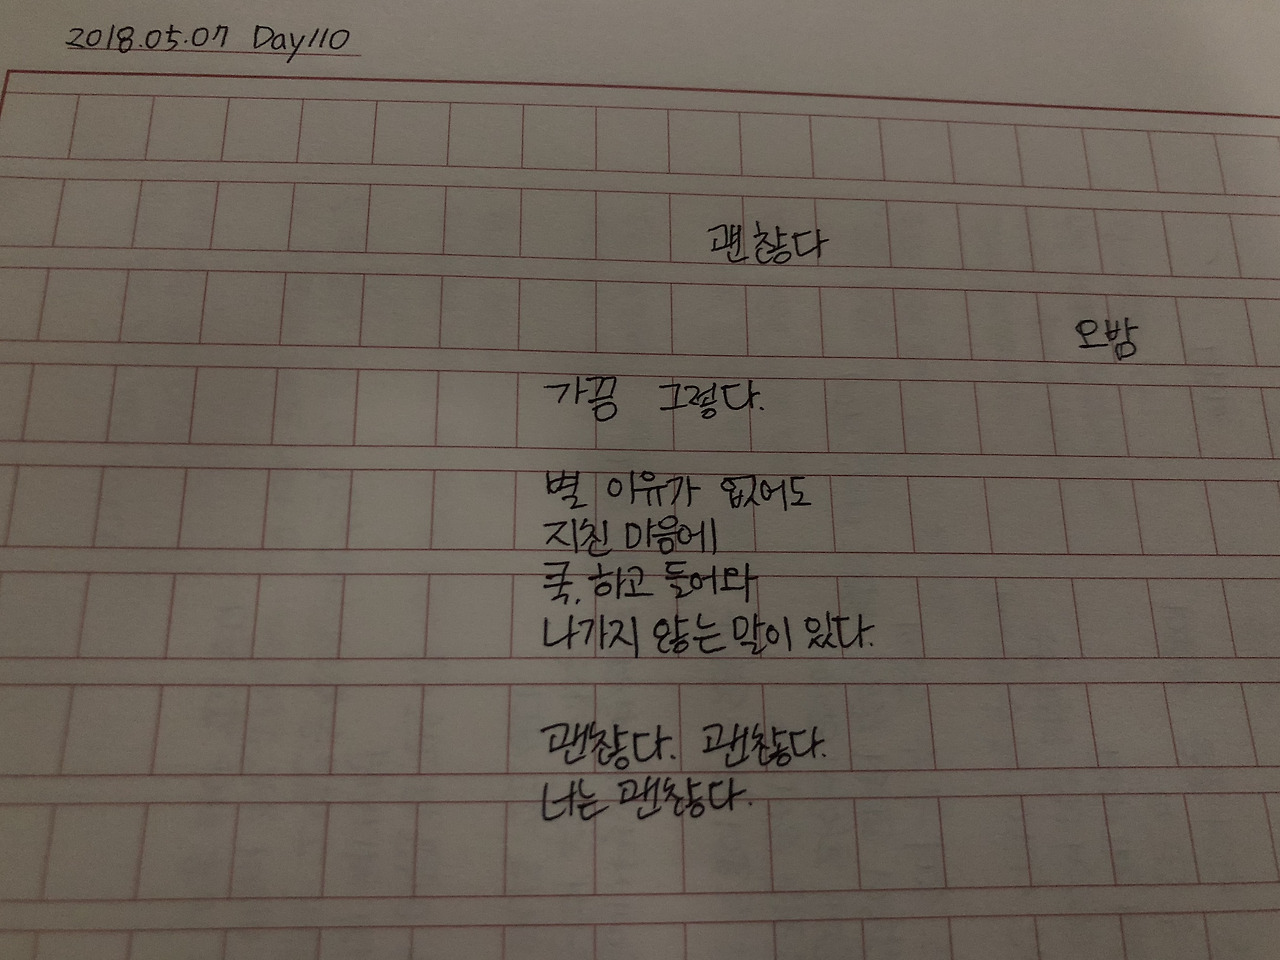 2018.05.07 Day110
괜찮다
오밤
가끔 그렇다.
별 이유가 없어도
지친 마음에
쿡, 하고 들어와
나가지 않는 말이 있다.
괜찮다. 괜찮다.
너는 괜찮다.